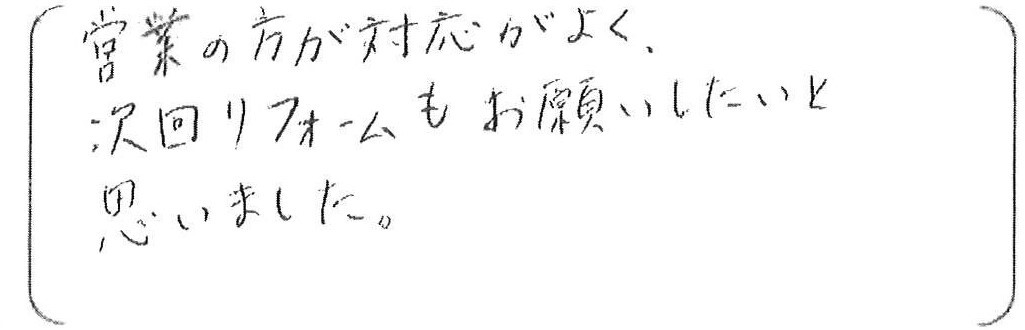 営業の方が対応がよく、
次回リフォームもお願いしたいと
思いました。